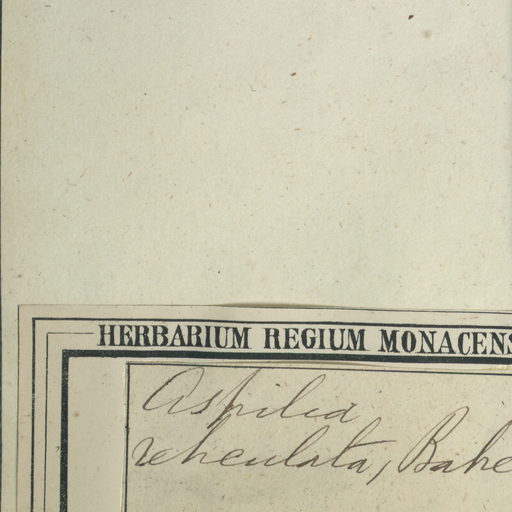 HERBARIUM REGIUM MONACENS
Aspilia
reticulata, Bake